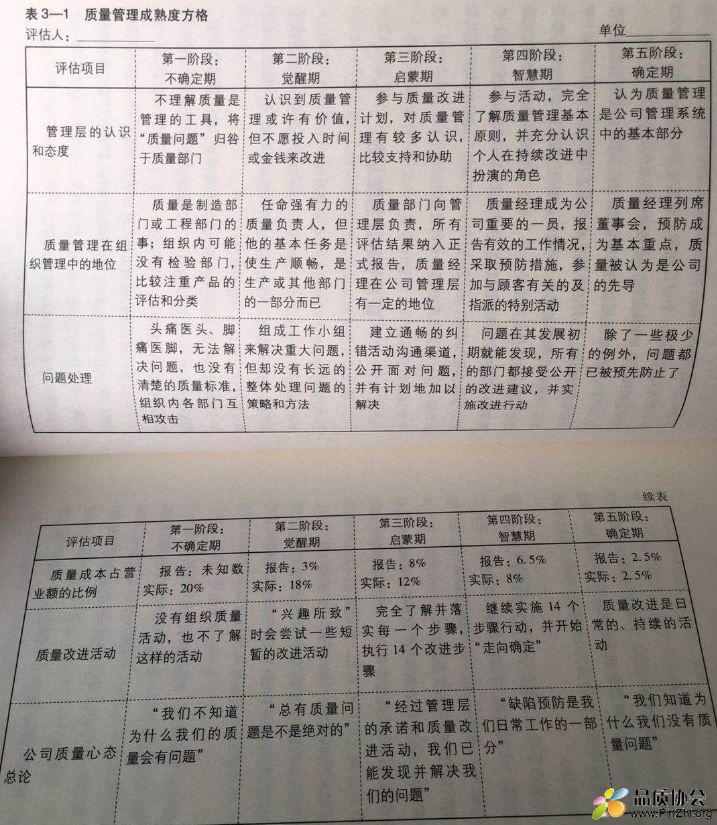 表3—1 质量管理成熟度方格
评估人： 单位
评估项目
第一阶段：
不确定期
第二阶段：
觉醒期
第三阶段：
启蒙期
第四阶段：
智慧期
第五阶段：
确定期
管理层的认识
和态度
不理解质量是
管理的工具，将
“质量问题”归咎
于质量部门
认识到质量管
理或许有价值，
但不愿投入时间
或金钱来改进
参与质量改进
计划，对质量管
理有较多认识，
比较支持和协助
参与活动，完全
了解质量管理基本
原则，并充分认识
个人在持续改进中
扮演的角色
认为质量管理
是公司管理系统
中的基本部分
质量管理在组
织管理中的地位
质量是制造部
门或工程部门的
事；组织内可能
没有检验部门，
比较注重产品的
评估和分类
任命强有力的
质量负责人，但
他的基本任务是
使生产顺畅，是
生产或其他部门
的一部分而已
质量部门向管
理层负责，所有
评估结果纳入正
式报告，质量经
理在公司管理层
有一定的地位
质量经理成为公
司重要的一员，报
告有效的工作情况，
采取预防措施，参
加与顾客有关的及
指派的特别活动
质量经理列席
董事会，预防成
为基本重点，质
量被认为是公司
的先导
问题处理
头痛医头、脚
痛医脚，无法解
决问题，也没有
清楚的质量标准，
组织内各部门互
相攻击
组成工作小组
来解决重大问题，
但却没有长远的
整体处理问题的
策略和方法
建立通畅的纠
错活动沟通渠道，
公开面对问题，
并有计划地加以
解决
问题在其发展初
期就能发现，所有
的部门都接受公开
的改进建议，并实
施改进行动
除了一些极少
的例外，问题都
已被预先防止了
续表
评估项目
第一阶段：
不确定期
第二阶段：
觉醒期
第三阶段：
启蒙期
第四阶段：
智慧期
第五阶段：
确定期
质量成本占营
业额的比例
报告：未知数
实际：20%
报告：3%
实际：18%
报告：8%
实际：12%
报告：6.5%
实际：8%
报告：2.5%
实际：2.5%
质量改进活动
没有组织质量
活动，也不了解
这样的活动
“兴趣所致”
时会尝试一些短
暂的改进活动
完全了解并落
实每一个步骤，
执行14个改进步
骤
继续实施14个
步骤行动，并开始
“走向确定”
质量改进是日
常的、持续的活
动
公司质量心态
总论
“我们不知道
为什么我们的质
量会有问题”
“总有质量问
题是不是绝对的”
“经过管理层
的承诺和质量改
进活动，我们已
能发现并解决我
们的问题”
“缺陷预防是我
们日常工作的一部
分”
“我们知道为
什么我们没有质
量问题”
品质协会
www.PinZhi.org